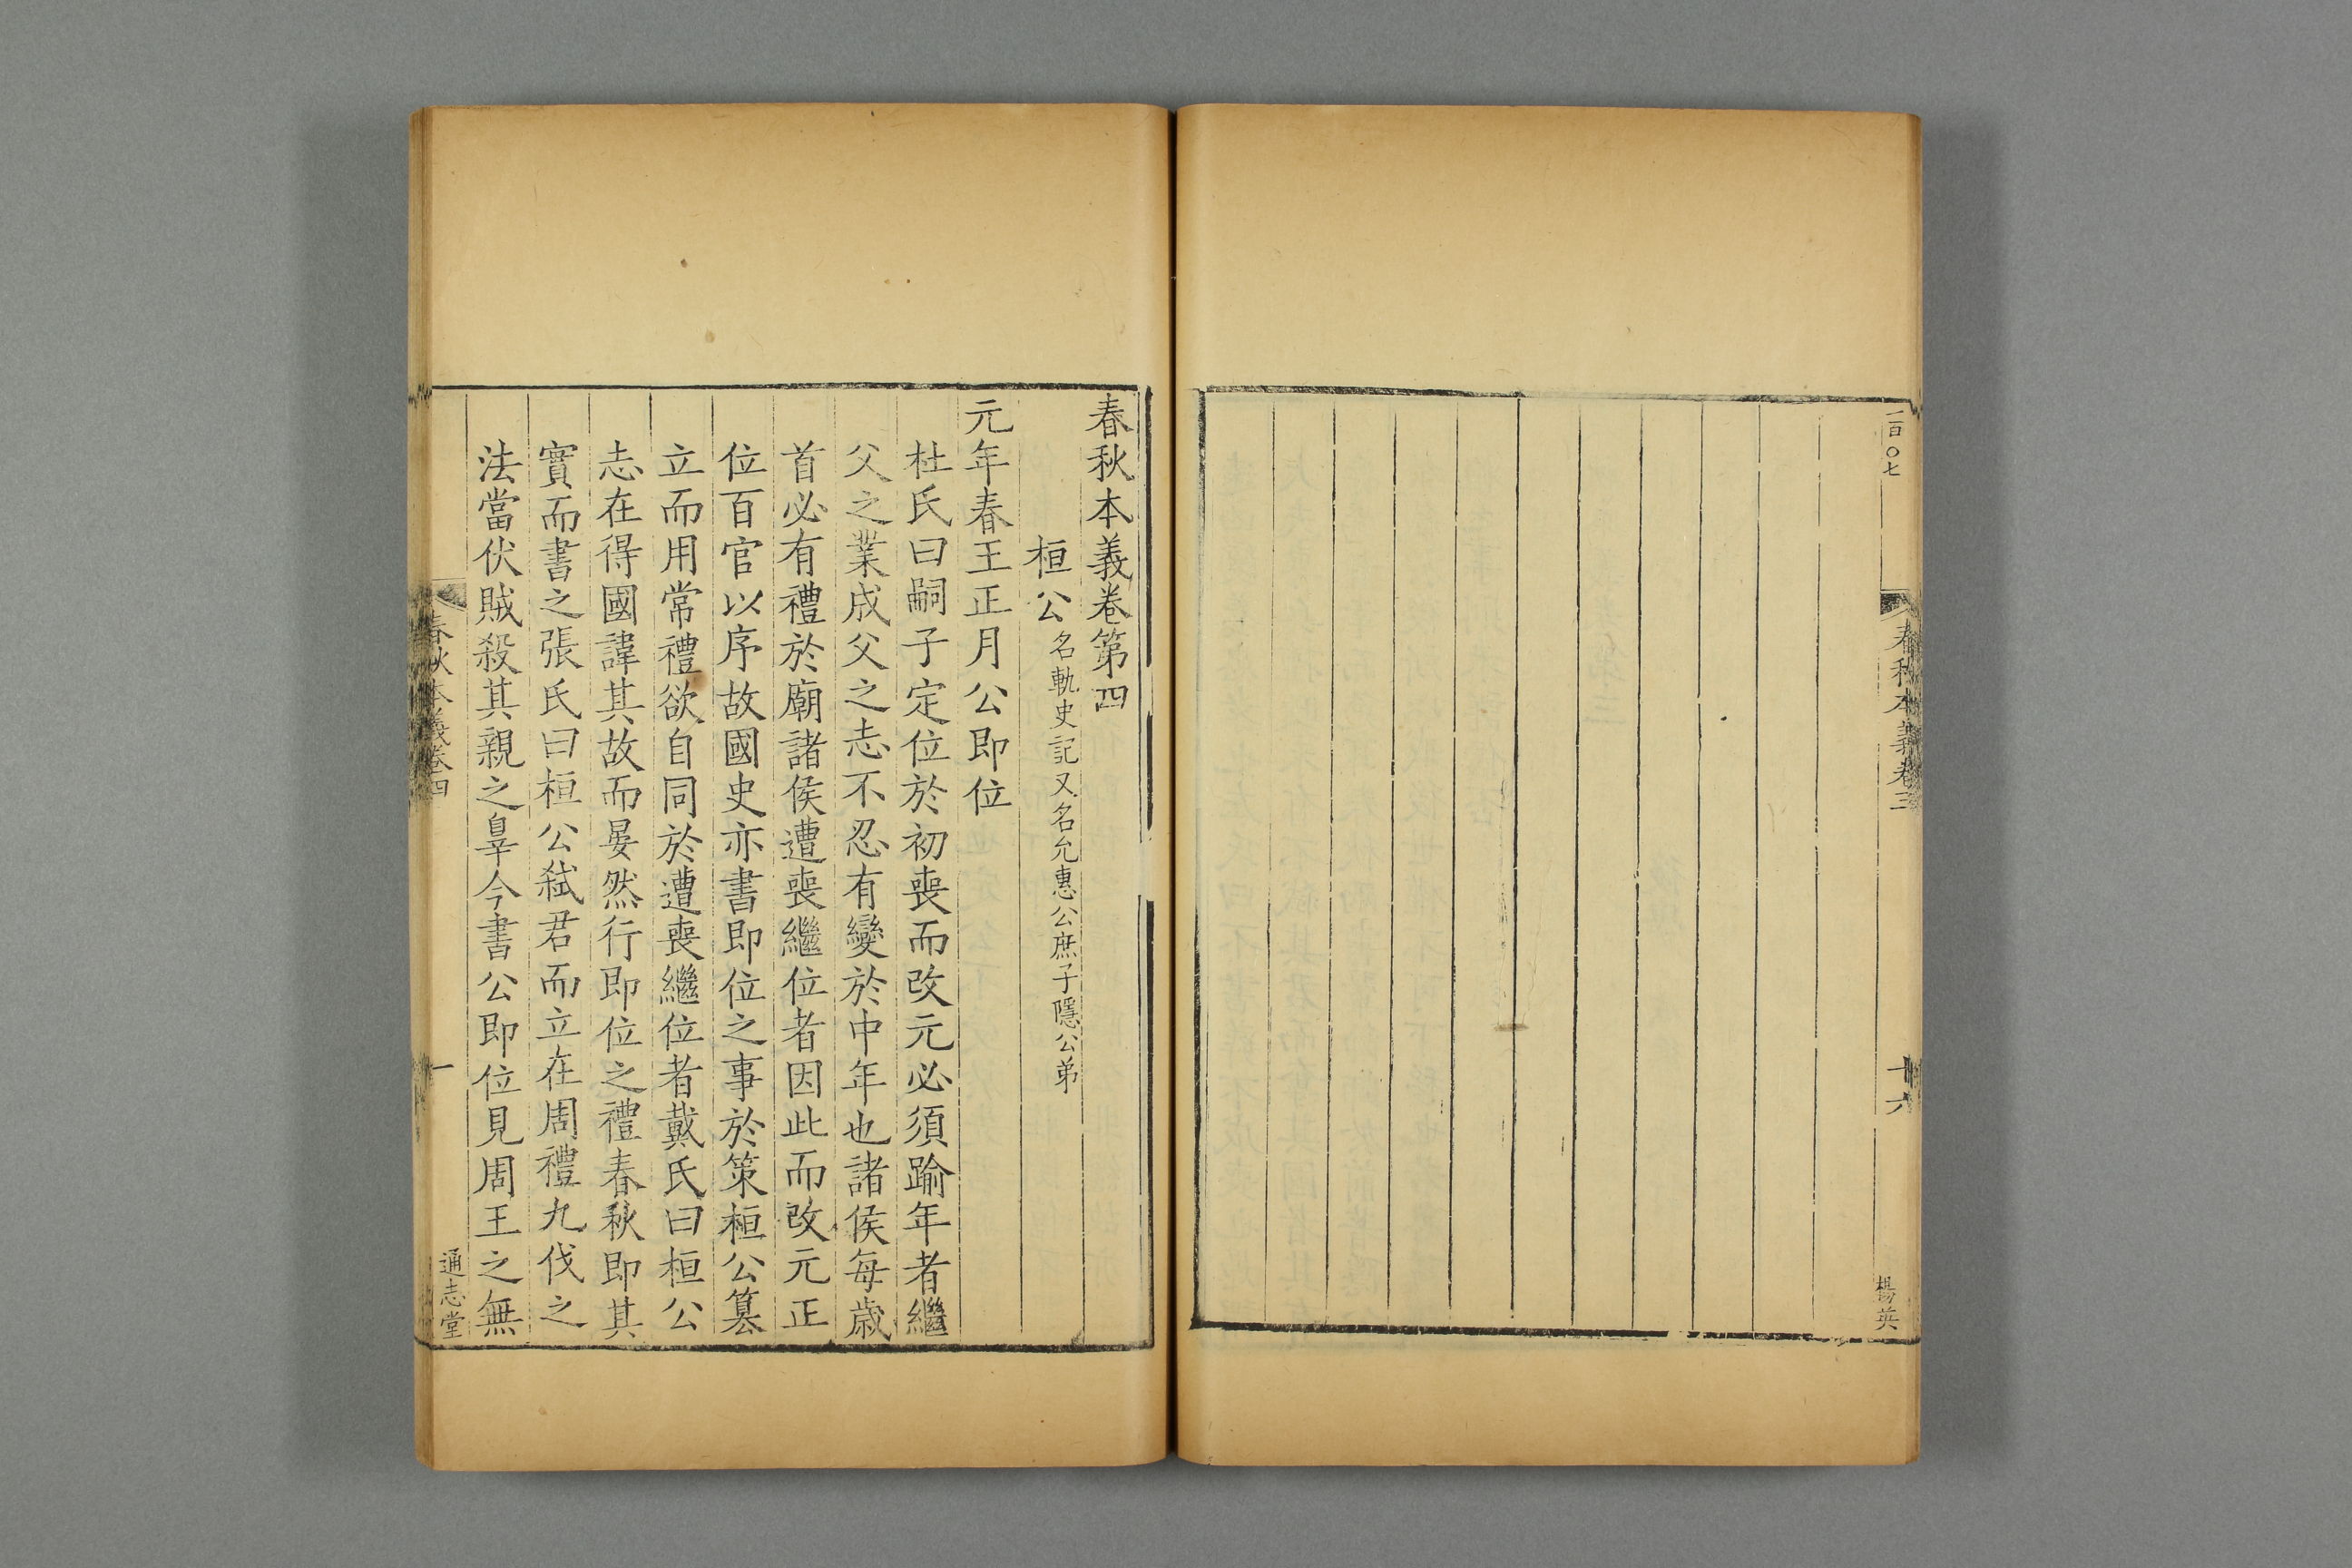 二百〇七
春秋本義卷三
十六
楊英
春秋本義卷第四
桓公名軌史記又名允惠公庶子隱公弟
元年春王正月公即位
杜氏曰嗣子定位於初喪而改元必須踰年者繼
父之業成父之志不忍有變於中年也諸侯每歲
首必有禮於廟諸侯遭喪繼位者因此而改元正
位百官以序故國史亦書即位之事於策桓公篡
立而用常禮欲自同於遭喪繼位者戴氏曰桓公
志在得國諱其故而晏然行即位之禮春秋即其
實而書之張氏曰桓公弑君而立在周禮九伐之
法當伏賊殺其親之辠今書公即位見周王之無
春秋本義卷四
一
通志堂